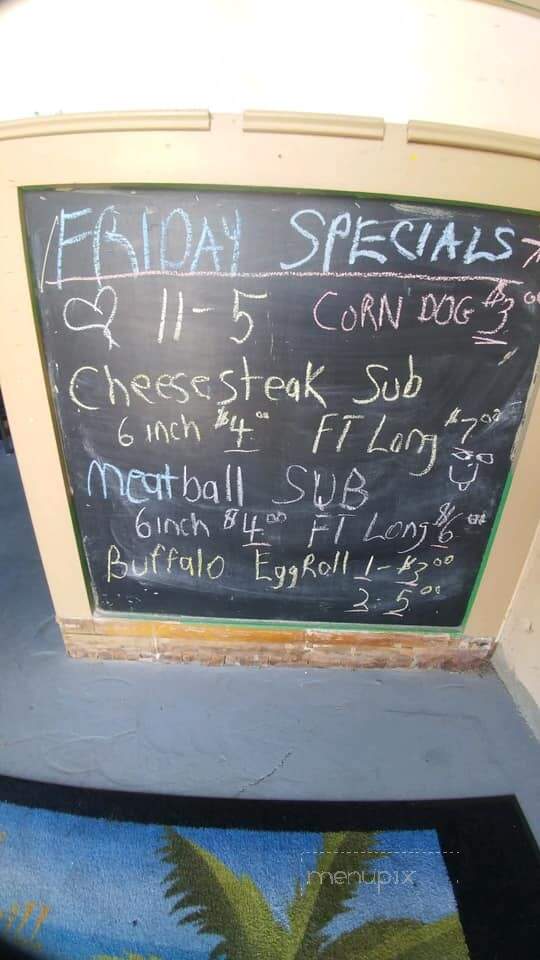 FRIDAY SPECIALS
11-5 CORN DOG $3.00
Cheesesteak Sub
6 inch $4.00 FT Long $7.00
Meatball SUB
6 inch $4.00 FT Long $6.00
Buffalo EggRoll 1-$3.00
2. 5.00
menupix